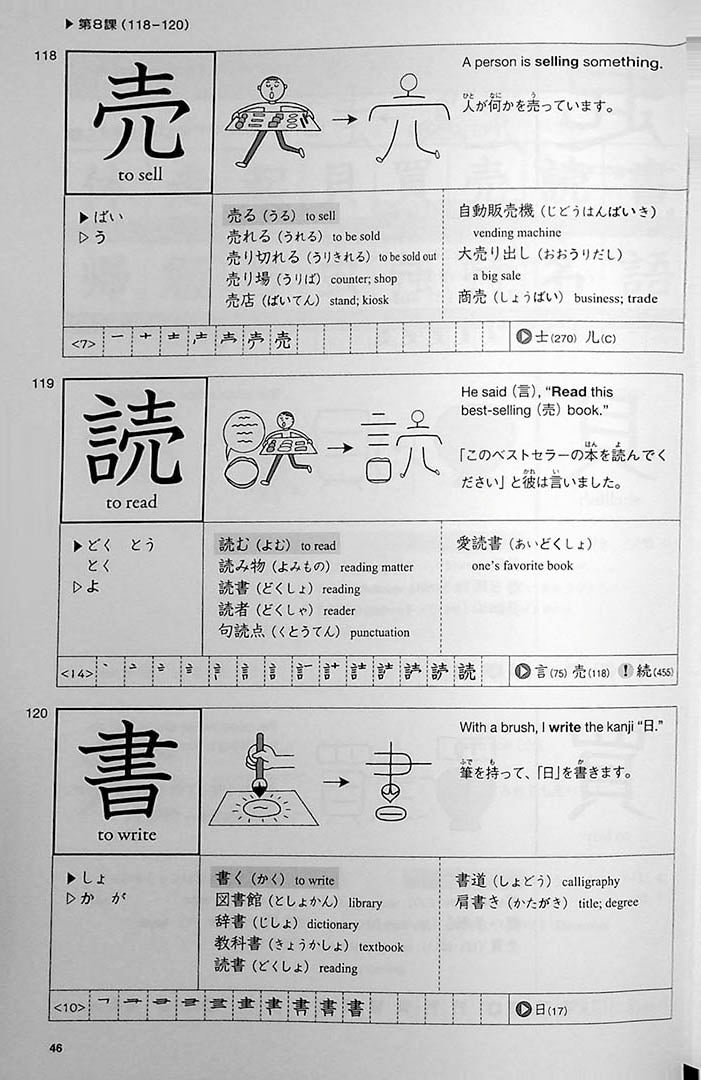 ▶ 第8課 (118－120)
118
売
to sell
A person is selling something.
人が何かを売っています。
ひと なに う
▶ばい
▷う
売る（うる） to sell
売れる（うれる） to be sold
売り切れる（うりきれる） to be sold out
売り場（うりば） counter; shop
売店（ばいてん） stand; kiosk
自動販売機（じどうはんばいき）
vending machine
大売り出し（おおうりだし）
a big sale
商売（しょうばい） business; trade
<7>
士(270) 儿(C)
119
読
to read
He said（言）, “Read this
best-selling（売）book.”
ほん よ
「このベストセラーの本を読んでく
かれ い
ださい」と彼は言いました。
▶どく とう
とく
▷よ
読む（よむ） to read
読み物（よみもの） reading matter
読書（どくしょ） reading
読者（どくしゃ） reader
句読点（くとうてん） punctuation
愛読書（あいどくしょ）
one’s favorite book
<14>
言(75) 売(118) ! 続(455)
120
書
to write
With a brush, I write the kanji “日.”
ふで も か
筆を持って、「日」を書きます。
▶しょ
▷か が
書く（かく） to write
図書館（としょかん） library
辞書（じしょ） dictionary
教科書（きょうかしょ） textbook
読書（どくしょ） reading
書道（しょどう） calligraphy
肩書き（かたがき） title; degree
<10>
日(17)
46